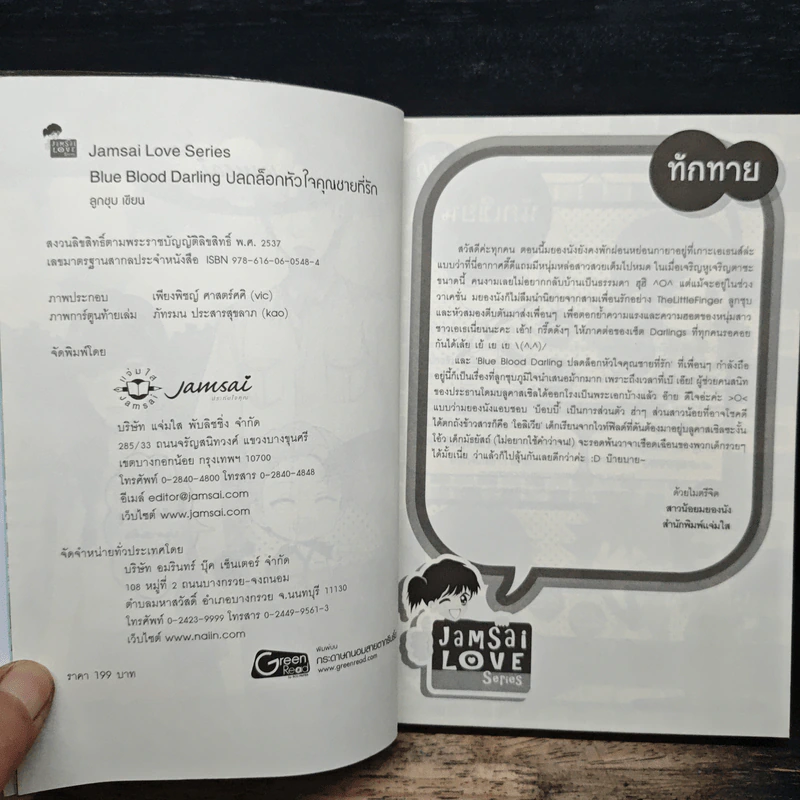 JAMSAI
LOVE
Series
Jamsai Love Series
Blue Blood Darling ปลดล็อกหัวใจคุณชายที่รัก
ลูกชุบ เขียน
สงวนลิขสิทธิ์ตามพระราชบัญญัติลิขสิทธิ์ พ.ศ. 2537
เลขมาตรฐานสากลประจำหนังสือ ISBN 978-616-06-0548-4
ภาพประกอบ เพียงพิชญ์ ศาสตร์ศศิ (vic)
ภาพการ์ตูนท้ายเล่ม ภัทรมน ประสารสุขลาภ (kao)
จัดพิมพ์โดย
แจ่มใส
JAMSAI
Jamsai
บริษัท แจ่มใส พับลิชชิ่ง จำกัด
285/33 ถนนจรัญสนิทวงศ์ แขวงบางขุนศรี
เขตบางกอกน้อย กรุงเทพฯ 10700
โทรศัพท์ 0-2840-4800 โทรสาร 0-2840-4848
อีเมล์ editor@jamsai.com
เว็บไซต์ www.jamsai.com
จัดจำหน่ายทั่วประเทศโดย
บริษัท อมรินทร์ บุ๊ค เซ็นเตอร์ จำกัด
108 หมู่ที่ 2 ถนนบางกรวย-จงถนอม
ตำบลมหาสวัสดิ์ อำเภอบางกรวย จ.นนทบุรี 11130
โทรศัพท์ 0-2423-9999 โทรสาร 0-2449-9561-3
เว็บไซต์ www.naiin.com
Green
Read
พิมพ์บน
กระดาษถนอมสายตากรีนรี้ด
www.greenread.com
ราคา 199 บาท
ทักทาย
สวัสดีค่ะทุกคน ตอนนี้มยองนังยังคงพักผ่อนหย่อนกายาอยู่ที่เกาะเอเรนส์ล่ะ
แบบว่าที่นี่อากาศดี๊ดีแถมมีหนุ่มหล่อสาวสวยเต็มไปหมด ในเมื่อเจริญหูเจริญตาซะ
ขนาดนี้ คนงามเลยไม่อยากกลับบ้านเป็นธรรมดา ฮุฮิ ^O^ แต่แม้จะอยู่ในช่วง
วาเคชั่น มยองนังก็ไม่ลืมนำนิยายจากสามเพื่อนรักอย่าง TheLittleFinger ลูกชุบ
และหัวสมองตีบตันมาส่งเพื่อนๆ เพื่อตอกย้ำความแรงและความฮอตของหนุ่มสาว
ชาวเอเรเนี่ยนนะคะ เอ้า! กรี๊ดดังๆ ให้ภาคต่อของเซ็ต Darlings ที่ทุกคนรอคอย
กันได้เล้ย เย้ เย เย \(^.^)/
และ 'Blue Blood Darling ปลดล็อกหัวใจคุณชายที่รัก' ที่เพื่อนๆ กำลังถือ
อยู่นี้ก็เป็นเรื่องที่ลูกชุบภูมิใจนำเสนอม้ากมาก เพราะถึงเวลาที่เบ๊ เอ๊ย! ผู้ช่วยคนสนิท
ของประธานโดมบลูคาสเซิลได้ออกโรงเป็นพระเอกบ้างแล้ว อ๊าย ดีใจอ่ะค่ะ >O<
แบบว่ามยองนังแอบชอบ 'บ็อบบี้' เป็นการส่วนตัว ฮ่าๆ ส่วนสาวน้อยที่อาจโชคดี
ได้ตกถังข้าวสารก็คือ 'โอลิเวีย' เด็กเรียนจากไวท์ฟิลด์ที่ดันต้องมาอยู่บลูคาสเซิลซะงั้น
โอ๊ว เด็กมัธยัสถ์ (ไม่อยากใช้คำว่าจน!) จะรอดพ้นวาจาเชือดเฉือนของพวกเด็กรวยๆ
ได้มั้ยเนี่ย ว่าแล้วก็ไปลุ้นกันเลยดีกว่าค่ะ :D บ๊ายบาย~
ด้วยไมตรีจิต
สาวน้อยมยองนัง
สำนักพิมพ์แจ่มใส
JAMSAI
LOVE
Series